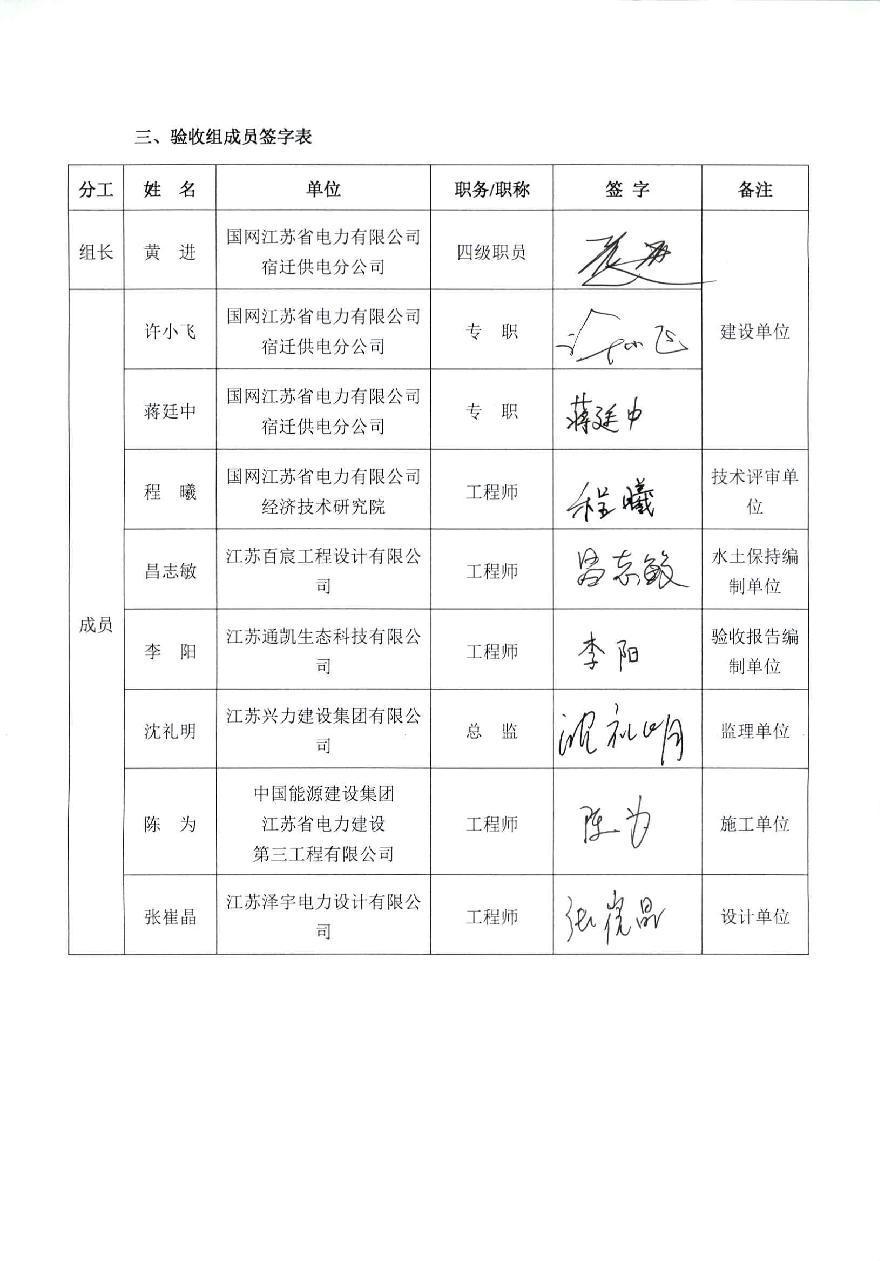 三、验收组成员签字表
分工 姓 名 单位 职务/职称 签 字 备注
组长 黄 进 国网江苏省电力有限公司 四级职员
宿迁供电分公司
成员
许小飞 国网江苏省电力有限公司 专 职 建设单位
宿迁供电分公司
蒋廷中 国网江苏省电力有限公司 专 职 蒋廷中
宿迁供电分公司
程 曦 国网江苏省电力有限公司 工程师 程曦 技术评审单
经济技术研究院 位
昌志敏 江苏百宸工程设计有限公 工程师 昌志敏 水土保持编
司 制单位
李 阳 江苏通凯生态科技有限公 工程师 李阳 验收报告编
司 制单位
沈礼明 江苏兴力建设集团有限公 总 监 沈礼明 监理单位
司
陈 为 中国能源建设集团 工程师 陈为 施工单位
江苏省电力建设
第三工程有限公司
张崔晶 江苏泽宇电力设计有限公 工程师 张崔晶 设计单位
司